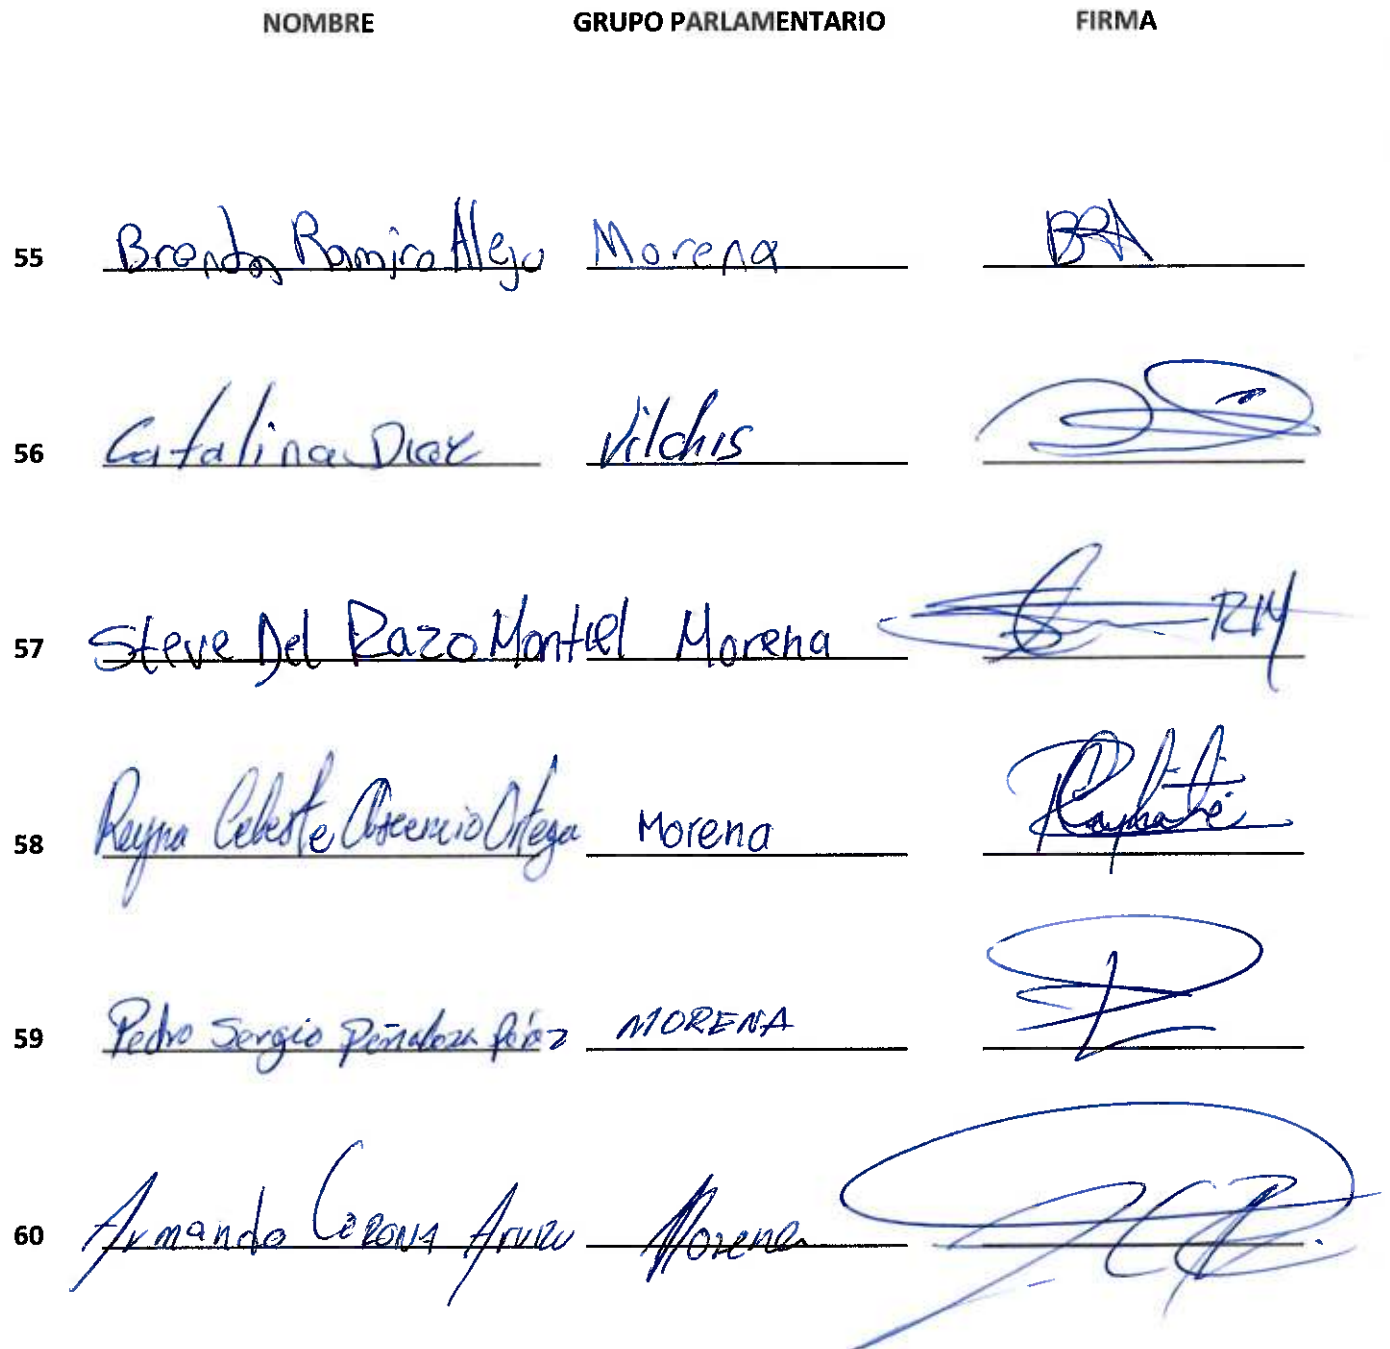 NOMBRE GRUPO PARLAMENTARIO FIRMA
55 Brenda Ramiro Alejo Morena BRA
56 Catalina Diaz Vilchis
57 Steve Del Razo Montiel Morena RM
58 Reyna Celeste Ascencio Ortega Morena
59 Pedro Sergio Peñaloza Pérez MORENA
60 Armando Corona Arvizu Morena